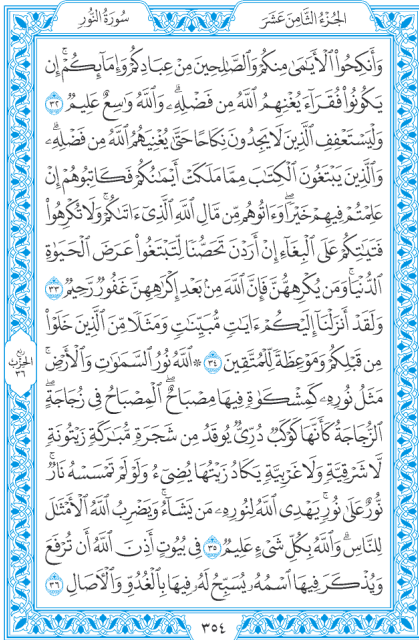 سُورَةُ النُّورِ
الجُزْءُ الثَّامِنَ عَشَرَ
وَأَنكِحُوا۟ ٱلْأَيَـٰمَىٰ مِنكُمْ وَٱلصَّـٰلِحِينَ مِنْ عِبَادِكُمْ وَإِمَآئِكُمْ ۚ إِن
يَكُونُوا۟ فُقَرَآءَ يُغْنِهِمُ ٱللَّهُ مِن فَضْلِهِۦ ۗ وَٱللَّهُ وَٰسِعٌ عَلِيمٌ ٣٢
وَلْيَسْتَعْفِفِ ٱلَّذِينَ لَا يَجِدُونَ نِكَاحًا حَتَّىٰ يُغْنِيَهُمُ ٱللَّهُ مِن فَضْلِهِۦ ۗ
وَٱلَّذِينَ يَبْتَغُونَ ٱلْكِتَـٰبَ مِمَّا مَلَكَتْ أَيْمَـٰنُكُمْ فَكَاتِبُوهُمْ إِنْ
عَلِمْتُمْ فِيهِمْ خَيْرًا ۖ وَءَاتُوهُم مِّن مَّالِ ٱللَّهِ ٱلَّذِىٓ ءَاتَىٰكُمْ ۚ وَلَا تُكْرِهُوا۟
فَتَيَـٰتِكُمْ عَلَى ٱلْبِغَآءِ إِنْ أَرَدْنَ تَحَصُّنًا لِّتَبْتَغُوا۟ عَرَضَ ٱلْحَيَوٰةِ
ٱلدُّنْيَا ۚ وَمَن يُكْرِههُّنَّ فَإِنَّ ٱللَّهَ مِنۢ بَعْدِ إِكْرَٰهِهِنَّ غَفُورٌ رَّحِيمٌ ٣٣
وَلَقَدْ أَنزَلْنَآ إِلَيْكُمْ ءَايَـٰتٍ مُّبَيِّنَـٰتٍ وَمَثَلًا مِّنَ ٱلَّذِينَ خَلَوْا۟
مِن قَبْلِكُمْ وَمَوْعِظَةً لِّلْمُتَّقِينَ ٣٤ ۞ ٱللَّهُ نُورُ ٱلسَّمَـٰوَٰتِ وَٱلْأَرْضِ ۚ
مَثَلُ نُورِهِۦ كَمِشْكَوٰةٍ فِيهَا مِصْبَاحٌ ۖ ٱلْمِصْبَاحُ فِى زُجَاجَةٍ ۖ
ٱلزُّجَاجَةُ كَأَنَّهَا كَوْكَبٌ دُرِّىٌّ يُوقَدُ مِن شَجَرَةٍ مُّبَـٰرَكَةٍ زَيْتُونَةٍ
لَّا شَرْقِيَّةٍ وَلَا غَرْبِيَّةٍ يَكَادُ زَيْتُهَا يُضِىٓءُ وَلَوْ لَمْ تَمْسَسْهُ نَارٌ ۚ
نُّورٌ عَلَىٰ نُورٍ ۗ يَهْدِى ٱللَّهُ لِنُورِهِۦ مَن يَشَآءُ ۚ وَيَضْرِبُ ٱللَّهُ ٱلْأَمْثَـٰلَ
لِلنَّاسِ ۗ وَٱللَّهُ بِكُلِّ شَىْءٍ عَلِيمٌ ٣٥ فِى بُيُوتٍ أَذِنَ ٱللَّهُ أَن تُرْفَعَ
وَيُذْكَرَ فِيهَا ٱسْمُهُۥ يُسَبِّحُ لَهُۥ فِيهَا بِٱلْغُدُوِّ وَٱلْـَٔاصَالِ ٣٦
ربع
الحزب
٣٦
٣٥٤